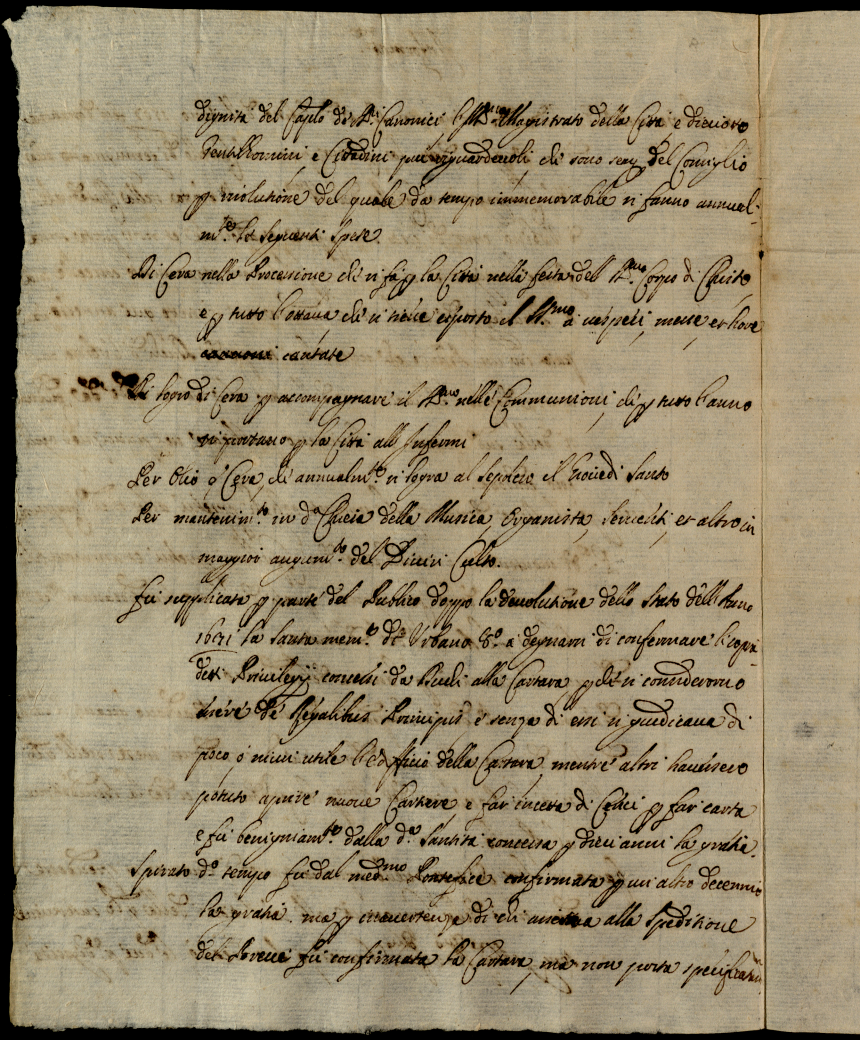 dignità del Caplo de SS.ri Canonici l'Ill.mo Magistrato della Città e diecidotto
Gentilhomini e Cittadini più riguardevoli che sono del Consiglio
p risolutione del quale da tempo immemorabile si fanno annual-
m.te le seguenti spese.
Di Cera nella Processione che si fà p la Città nella festa dell SS.mo Corpo di Christo
e p tutto l'ottava che si tiene esposto il SS.mo a vesperi, messe et hore
cantate
Di sogo di Cera p accompagnare il SS.mo nelle Communioni, che p tutto l'anno
si portano p la Città all Infermi
Per Olio e Cera, che annualm.te si logra al Sepolcro il Giovedi Santo
Per mantenim.to in d.a Chiesa della Musica, Organista, Serventi, et altro in
maggior augum.to del Divin Culto.
fù supplicata p parte del Publico doppo la devolutione dello Stato dell'Anno
1631 la santa mem.a di Urbano 8.o a degnarsi di confermare li copra
detti Privilegij concessi da Duchi alla Cartara p che si considerono
havere de Regalibus Principis e senza di essi si giudicava di
poco, ò niun utile l'edifficio della Cartara, mentre altri havrieno
potuto aprire nuove Cartare, e far incetta di Cenci p far carta
e fù benigniam.te dalla d.a Santità concessa p dieci anni la gratia.
Spirato d.o tempo fù dal med.mo Pontefice confirmata p un altro decennio
la gratia. ma p inavertenza di chi assisteva alla speditione
del Breve fù confirmata la Cartara, ma non posta specificatam